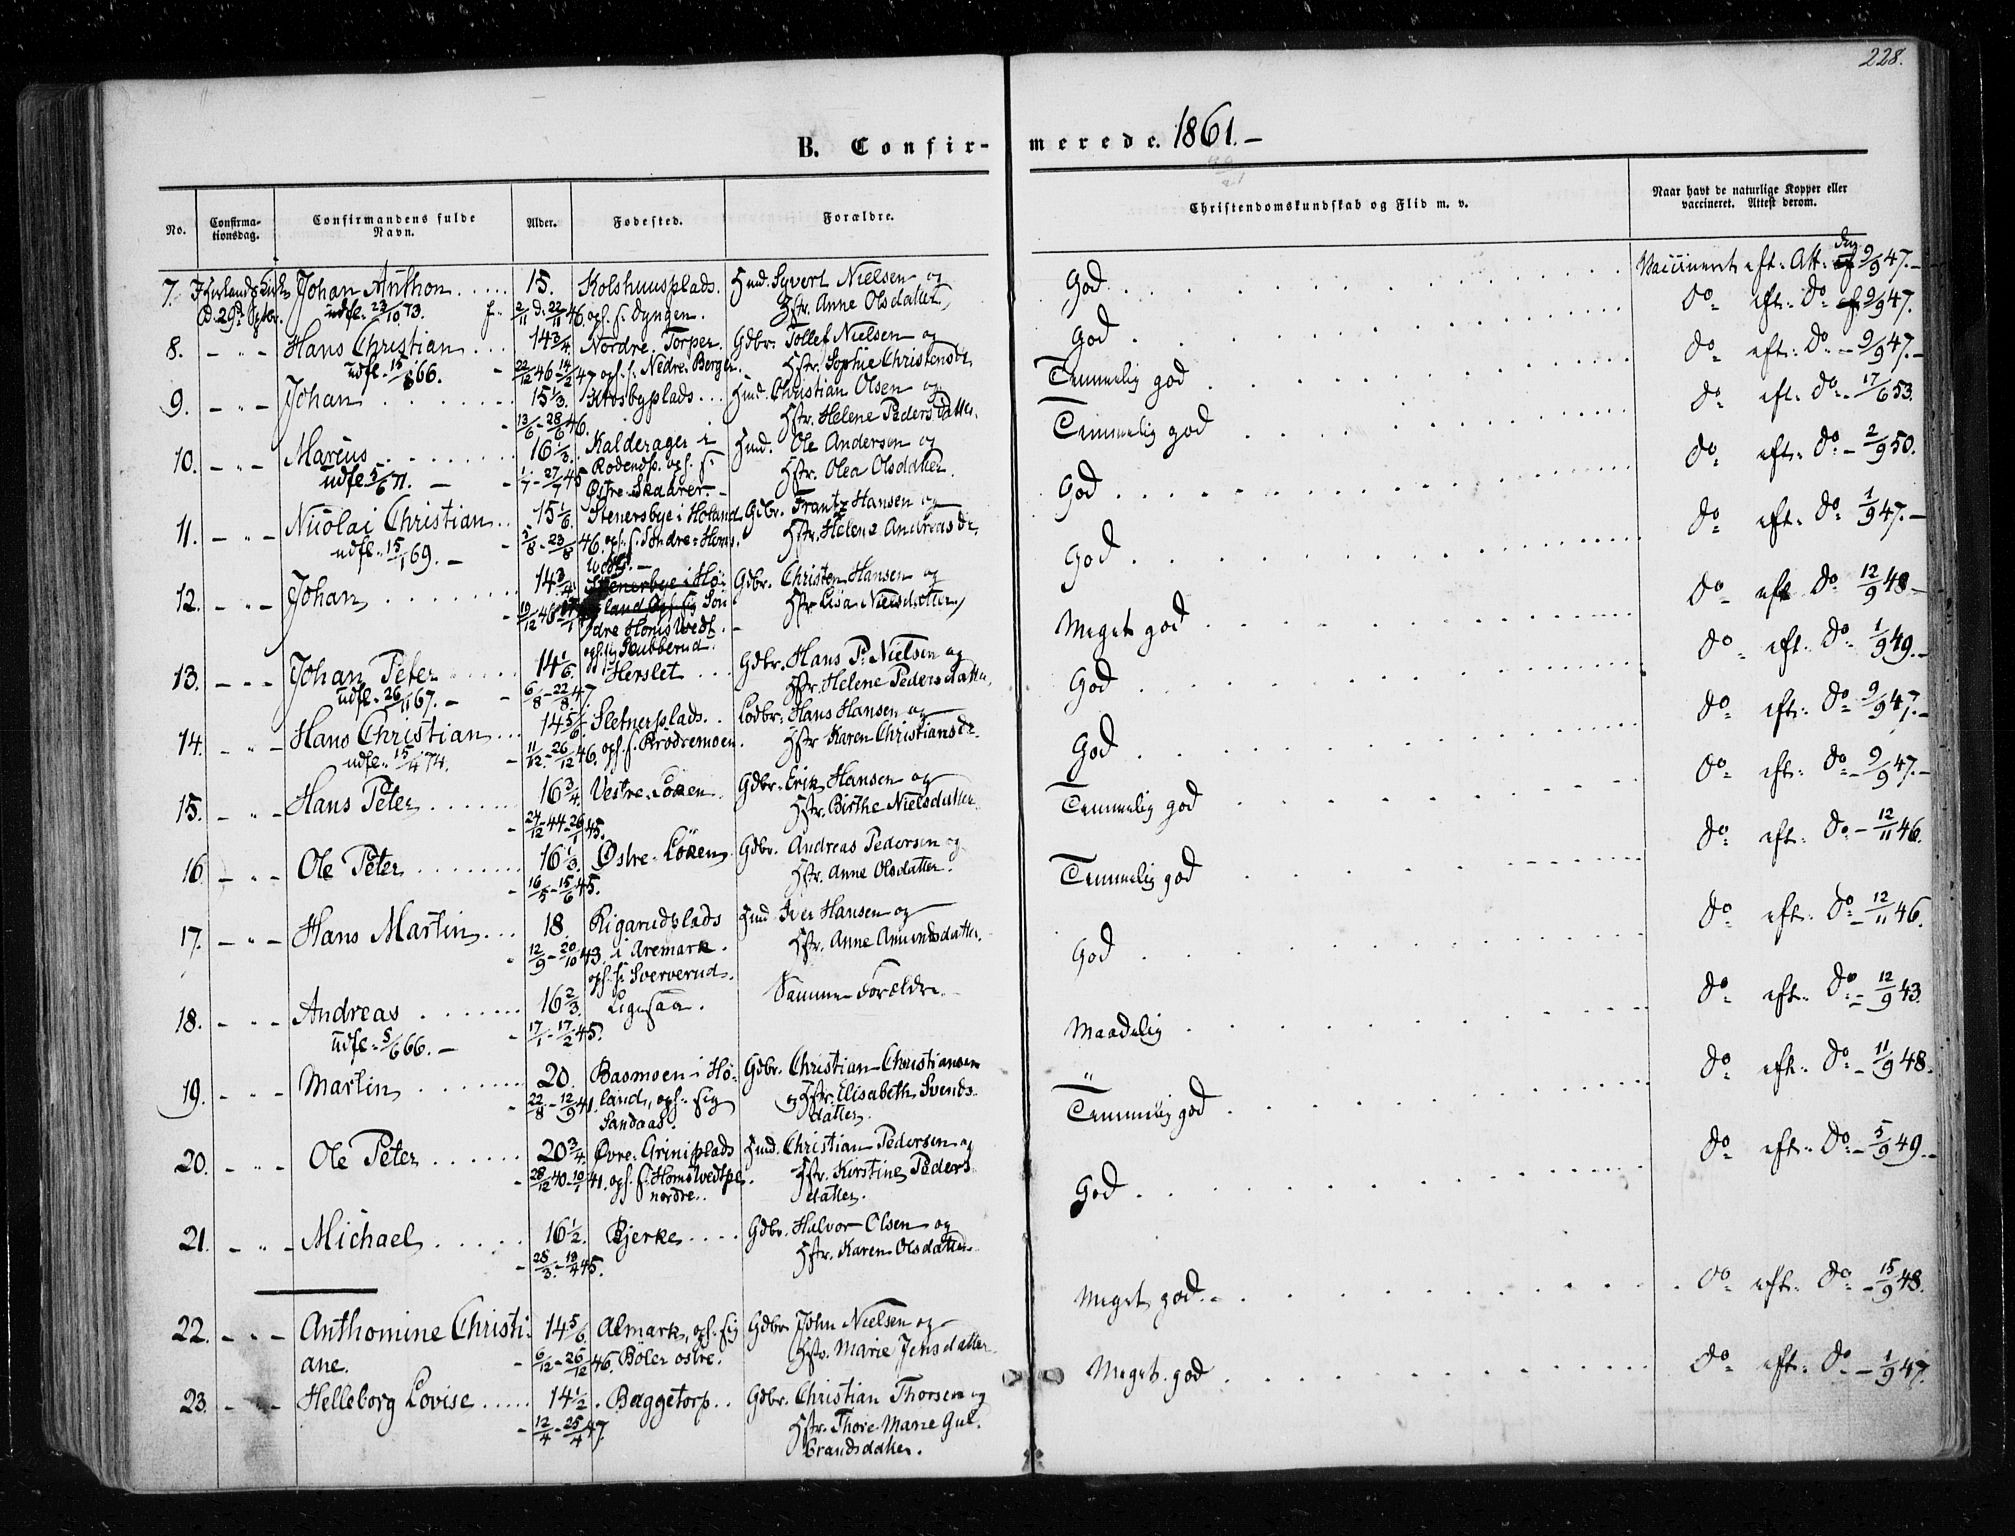 228.
B. Confir- merede. 1861.-
No.
Confirma-
tionsdag.
Confirmandens fulde
Navn.
Alder.
Fødested.
Forældre.
Christendomskundskab og Flid m. v.
Naar havt de naturlige Kopper eller
vaccineret. Attest derom.
7. Johan Anthon 15. Kolshuusplads. Hmd. Syvert Nielsen og God Vaccineret eft. Att. den 9/9 47.-
d. 29de Septbr. udfl. 23/10 73. f. 2/11 d. 22/11 46. ops. s. Dyngen. Hstr. Anne Olsdatter
8. - " - Hans Christian 14 3/4. Nordre Torper. Gdbr. Tollef Nielsen og God do eft. do 9/9 47.
udfl. 15/1 66. - 22/12 46 - 14/2 47 ops. s. Nedre Berger. Hstr. Sophie Christensdr.
9. - " - Johan 15 1/3. Krosbyplads Hmd. Christian Olsen og Temmelig god do eft. do - 9/9 47.-
- 13/6 - 28/6 46. Hstr. Helene Pedersdatter.
10. - " - Marcus 16 1/3. Kalderager i Hmd. Ole Andersen og Temmelig god do eft. do - 17/6 53.
udfl. 5/6 71. - - 1/7 - 27/7 45 Rodends. ops. s. Hstr. Olea Olsdatter.
Østre Skaarer.-
11. - " - Nicolai Christian 15 1/6. Stenersbye i Høland Gdbr. Frantz Hansen og God do eft. do - 2/9 50.
udfl. 15/1 69. - - 3/8 - 23/8 46. ops. s. Søndre Homs- Hstr. Helene Andreasdr.
vedt.-
12. - " - Johan 14 3/4. Stenersbye i Hø- Gdbr. Christen Hansen og God do eft. do 1/9 47.-
- 19/12 46 land Ops. sig Søn- Hstr. Lisa Nielsdatter
dre Homsvedt.-
ops. sig Skubberud.
13. - " - Johan Peter 14 1/6. Herslet Gdbr. Hans P. Nielsen og Meget god do eft do 12/9 48 -
udfl. 26/11 67. - - 6/8 - 22/8 47. Hstr. Helene Pedersdatter.
14. - " - Hans Christian 14 5/6. Sletnerplads. Lodbr. Hans Hansen og God do eft. do 1/9 49.-
udfl. 15/4 74. - 11/12 - 26/12 46. ops. s. Krodremoen. Hstr Karen Christiansdr.
15. - " - Hans Peter 16 3/4. Vestre Løken. Gdbr. Erik Hansen og God do eft. do - 9/9 47.-
- 24/12 44 - 26/1 45. Hstr. Birthe Nielsdatter.
16. - " - Ole Peter 16 1/3. Østre Løken Gdbr. Andreas Pedersen og Temmelig god do eft. do - 9/9 47.-
- 16/5 - 15/6 45. Hstr. Anne Olsdatter.
17. - " - Hans Martin 18. Rigarudplads Hmd. Iver Hansen og Temmelig god do eft. do - 12/11 46.
- 12/9 - 20/10 43. i Aremark. Hstr. Anne Amundsdatter.
ops. s. Sververud.
18. - " - Andreas 16 2/3. Ligesaa. Samme Forældre.- God do eft. do - 12/11 46.
udfl. 5/6 66. - - 17/1 - 17/2 45.
19. - " - Martin 20. Basmoen i Hø- Gdbr. Christian Christiansen Maadelig do eft. do - 12/9 43.
- 22/8 - 12/9 41. land, ops. sig og Hstr. Elisabeth Svends-
Sandaas. datter.
20. - " - Ole Peter 20 3/4. Øvre Griniplads Hmd. Christian Pedersen og Temmelig god do eft. do - 11/9 48.
- 28/12 40 - 10/1 41. ops. s. Homsvedtpl. Hstr. Kirstine Peders-
nordre. datter.
21. - " - Michael 16 1/2. Bjerke Gdbr. Halvor Olsen og God do eft. do - 5/9 49.-
- 28/3 - 19/4 45. Hstr. Karen Olsdatter.
22. - " - Anthomine Christi- 14 5/6. Almark, ops. sig Gdbr. John Nielsen og Meget god do eft. do - 15/9 48.
ane. - 6/12 - 26/12 46. Bøler østre. Hstr. Marie Jensdatter
23. - " - Helleborg Lovise 14 1/2. Baggetorp Gdbr. Christian Thorsen og Meget god do eft. do - 1/9 47.
- 12/4 - 25/4 47. Hstr. Thore Marie Gul-
brandsdatter.